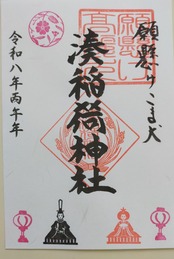 願懸けこま犬
湊稲荷神社
令和八年丙午年